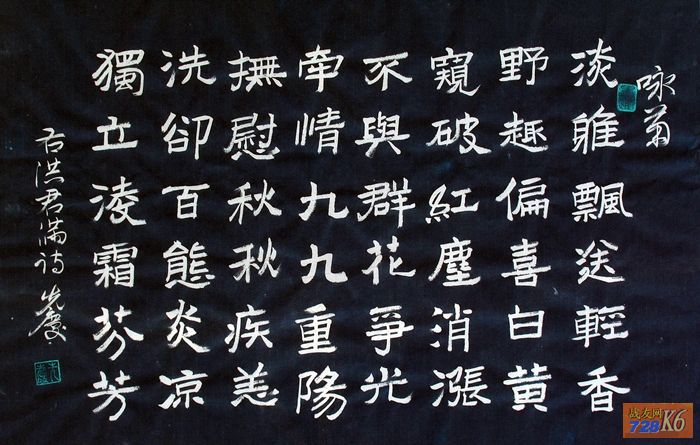 咏菊
淡雅飄送輕香
野趣偏喜白黄
窺破紅塵消漲
不與群花爭光
牵情九九重陽
撫慰秋秋疾恙
洗卻百態炎凉
獨立淩霜芬芳
洪君满诗
战友网
728K6